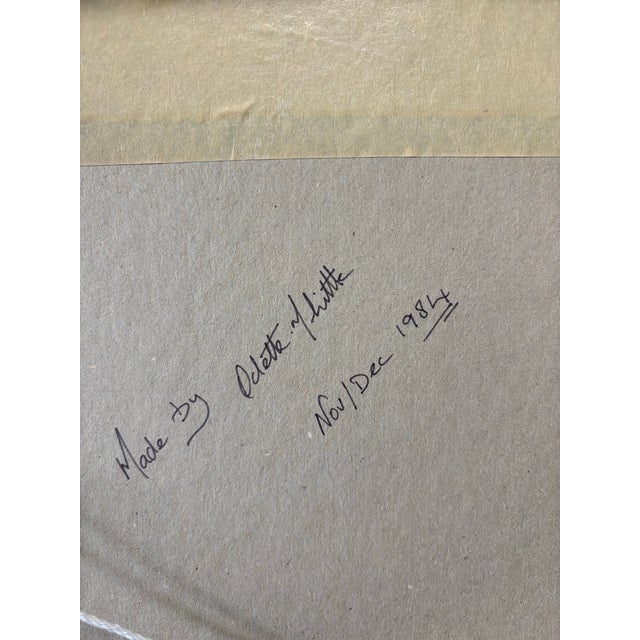 Made by Odette M Little
Nov/Dec 1984